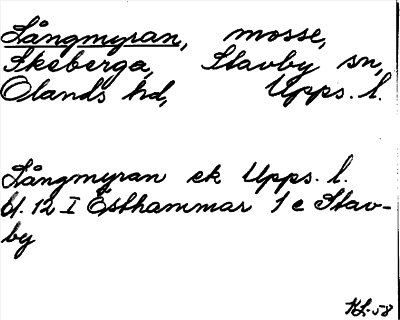 Långmyran, mosse,
Skeberga, Stavby sn,
Olands hd, Upps. l.
Långmyran ek Upps. l.
bl. 12 I Östhammar 1 c Stav-
by
KL-58